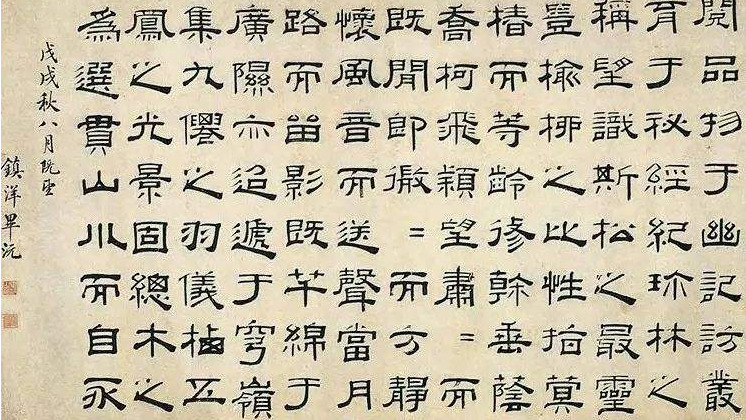 閱品物于幽記訪叢
育于秘經紀珎林之
稱望識斯松之最靈
豈榆柳之比性指蓂
椿而等齡修幹垂蔭
喬柯飛穎望肅=而
既閒即徹=而方靜
懷風音而送聲當月
路而畱影既芊綿于
廣隰亦迢遞于穹嶺
集九僊之羽儀棲五
鳳之光景固總木之
為選貫山川而自永
戊戌秋八月既望
鎮洋畢沅